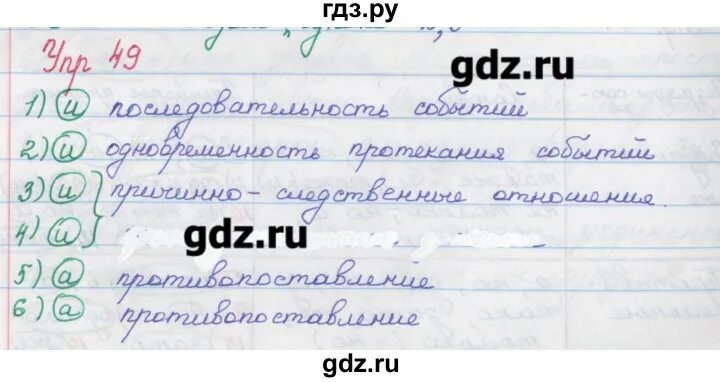 гдз.ру
Упр 49
gdz.ru
1) и последовательность событий
2) и одновременность протекания событий
3) и } причинно-следственные отношения.
4) и
gdz.ru
5) а противопоставление
6) а противопоставление
gdz.ru